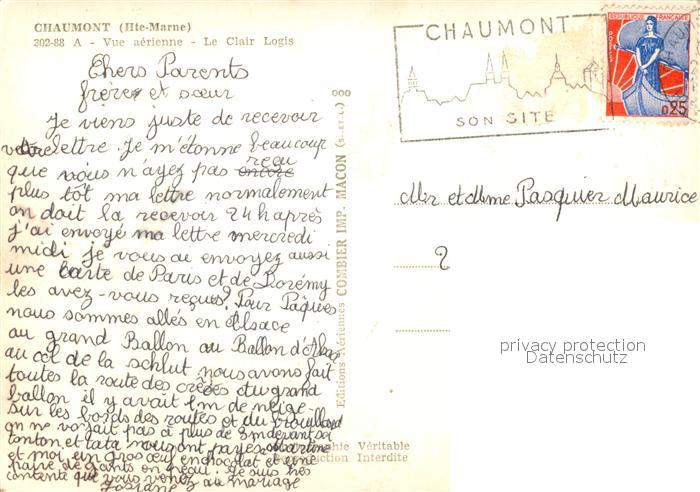 CHAUMONT (Hte-Marne)
302-88 A - Vue aérienne - Le Clair Logis
Chers Parents
frère et sœur
Je viens juste de recevoir
votre lettre. Je m'étonne beaucoup
que vous n'ayez pas encore reçu
plus tôt ma lettre normalement
on doit la recevoir 24h après
j'ai envoyé ma lettre mercredi
midi je vous ai envoyez aussi
une carte de Paris et de Dorémy
les avez-vous reçus? Pour Pâques
nous sommes allés en Alsace
au grand Ballon au Ballon d'Alsace
au col de la schlut nous avons fait
toutes la route des crêtes du grand
ballon il y avait 1m de neige
sur les bords des routes et du brouillard
on ne voyait pas à plus de 3m devant soi
tonton et tata m'ont payes Martine
et moi un gros œuf en chocolat et une
paire de gants en peau. Je suis très
contente que vous venez au mariage
Josiane
Editions Aériennes COMBIER IMP. MACON (S.-et-L.) 000
Photographie Véritable
Reproduction Interdite
CHAUMONT
SON SITE
REPUBLIQUE FRANÇAISE
POSTES
0,25
Mr et Mme Pasquier Maurice
?
privacy protection
Datenschutz